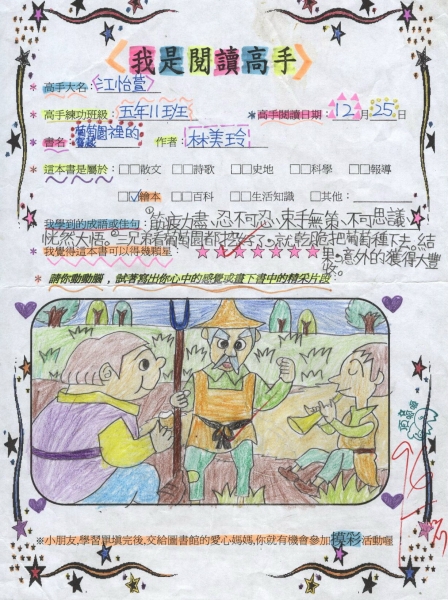 《我是閱讀高手》
* 高手大名：江怡萱
* 高手練功班級：五年11班生 *高手閱讀日期：12月25日
* 書名 葡萄園裡的 作者：林美玲
* 這本書是屬於：□□散文 □□詩歌 □□史地 □□科學 □□報導
□☑繪本 □□百科 □□生活知識 □□其他：
* 我學到的成語或佳句：筋疲力盡、忍不可忍、束手無策、不可思議、
恍然大悟。三兄弟看葡萄園都挖好了，就乾脆把葡萄種下去。結
* 我覺得這本書可以得幾顆星：★★★★★★★果，意外的獲得大豐
收。
* 請你動動腦，試著寫出你心中的感覺或畫下書中的精采片段
※小朋友,學習單填完後,交給圖書館的愛心媽媽,你就有機會參加摸彩活動喔！